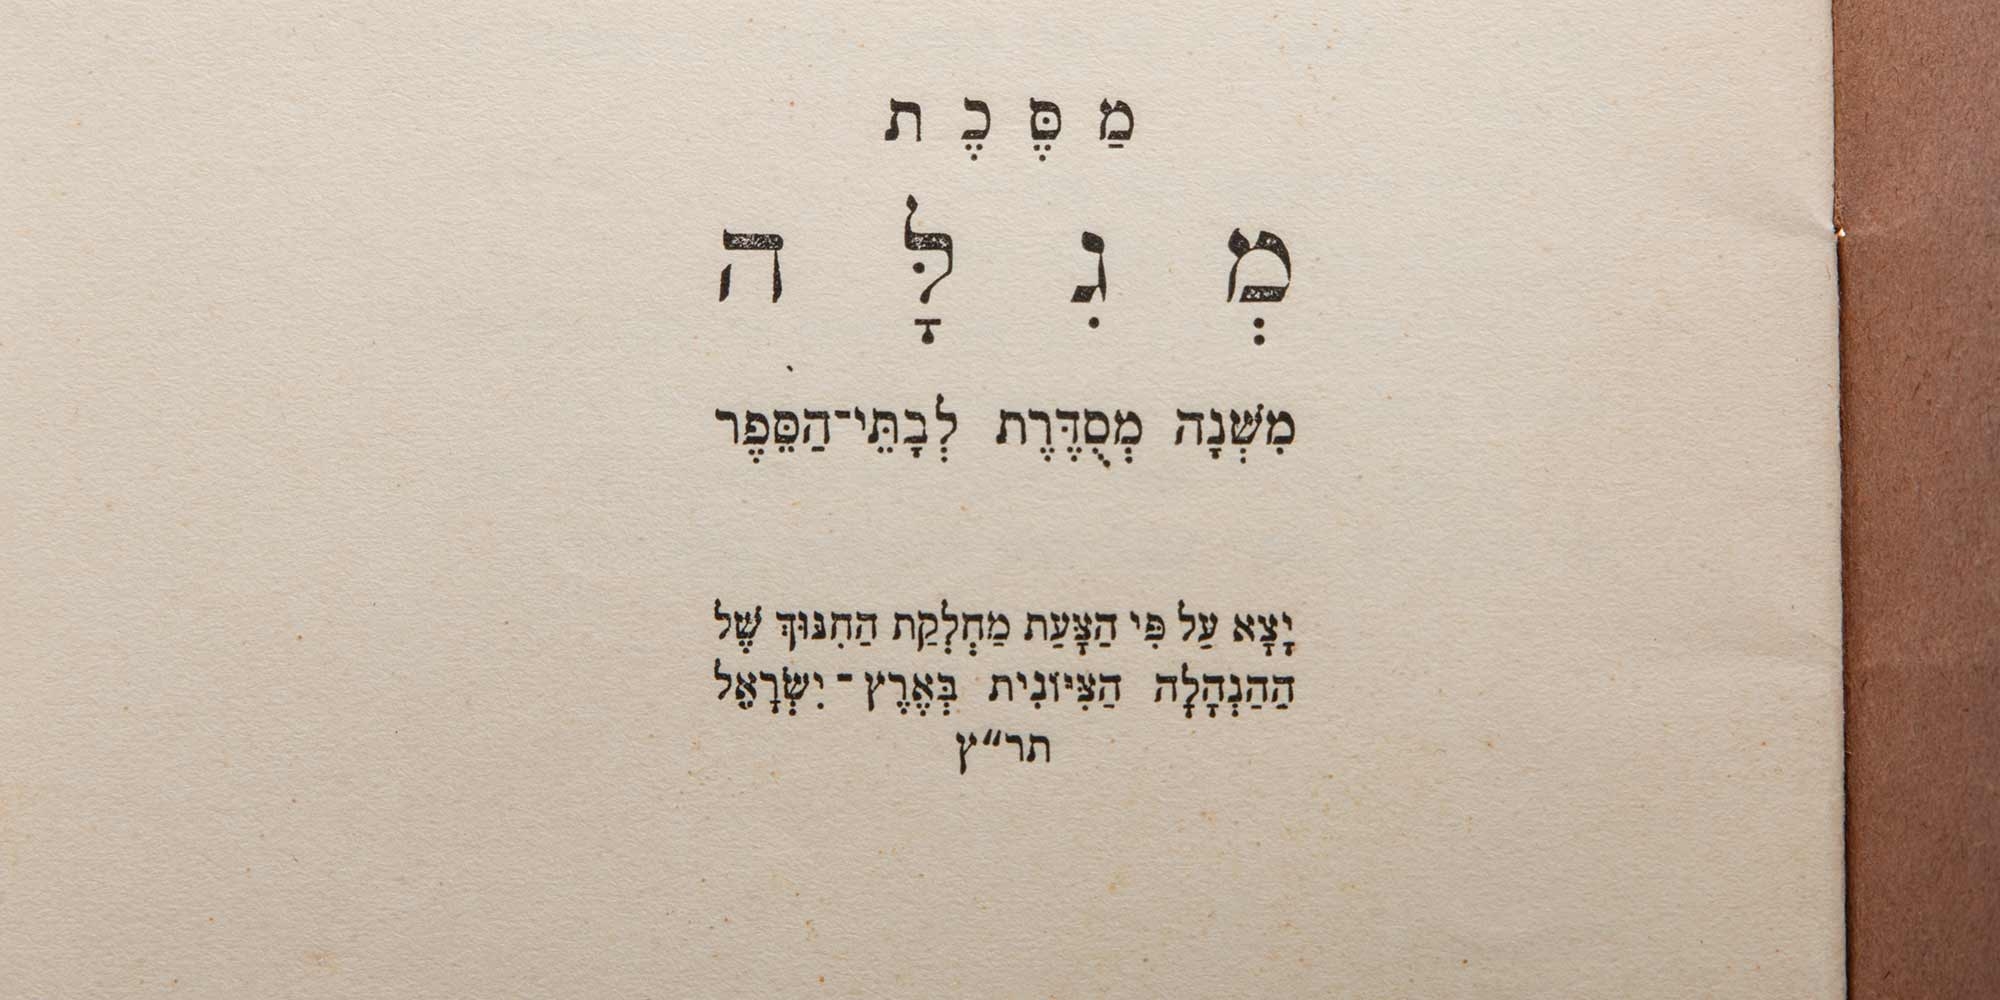 מַסֶּכֶת
מְגִלָּה
מִשְׁנָה מְסֻדֶּרֶת לְבָתֵּי־הַסֵּפֶר
יָצָא עַל פִּי הַצָּעַת מַחְלְקַת הַחִנּוּךְ שֶׁל
הַהַנְהָלָה הַצִּיּוֹנִית בְּאֶרֶץ־יִשְׂרָאֵל
תר״ץ